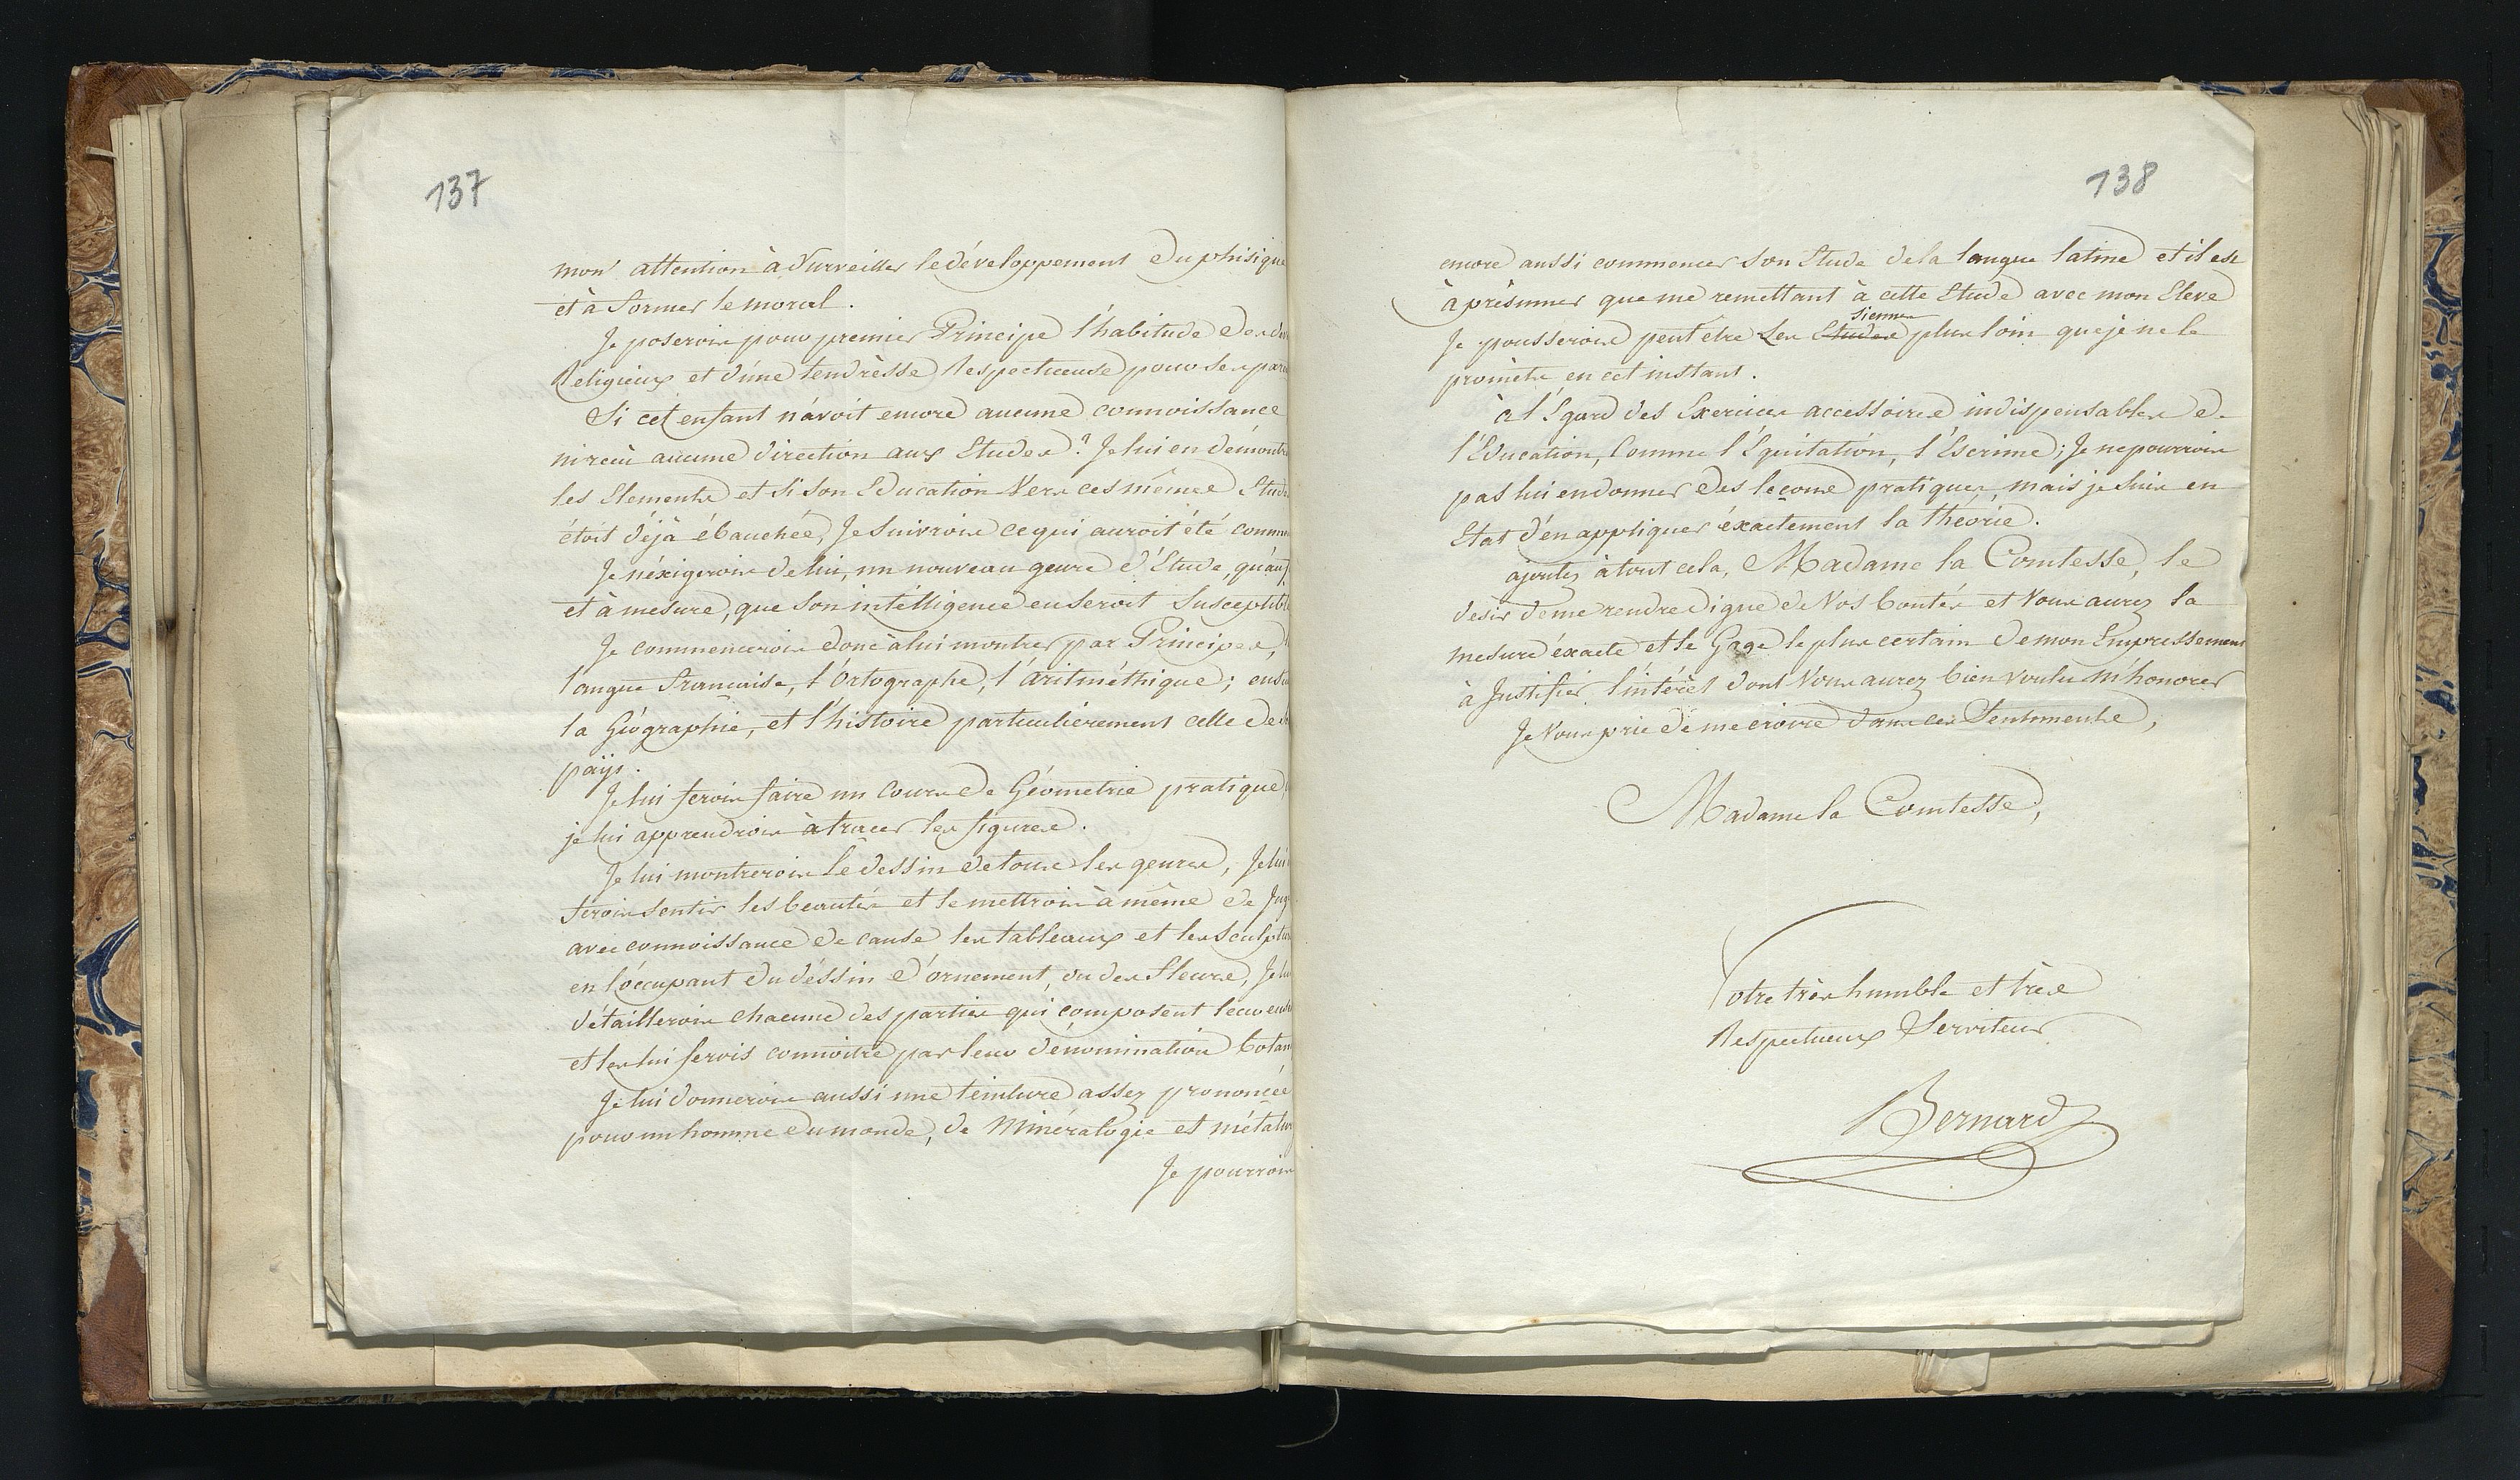 137
mon attention à Surveiller le développement du phisique
et à former le moral.
Je poserois pour premier Principe l'habitude des
Religieux et d'une tendrèsse Respectueuse pour ses
Si cet enfant n'avoit encore aucune connoissance
ni reçu aucune direction aux Etudes? Je lui en démontre
les Elements et si son Education Vers ces mêmes Etud
étoit déjà ébauchée, Je suivrois ce qui auroit été comm
Je n'éxigerois de lui, un nouveau genre d'Etude, qu'au
et à mesure, que son intélligence en seroit Susceptible
Je commencerois donc à lui montrer par Principes,
langue Francaise, l'Ortographe, l'aritméthique; ensu
la Géographie, et l'histoire particulièrement celle de
pays.
Je lui ferois faire un Cours de Géometrie pratique,
je lui apprendrois à tracer les figures.
Je lui montrerois le dessin de tous les genres, Je lui
ferois sentir les beautés et le mettrois à même de Jug
avec connoissance de cause les tableaux et les Sculptur
en l'occupant du dessin d'ornement, ou des fleurs, Je lu
détaillerois chacune des parties qui composent leur ens
et les lui ferois connoitre par leur dénomination botan
Je lui donnerois aussi une teinture assez prononcée
pour un homme du monde, de Minéralogie et métalu
Je pourrois
138
encore aussi commencer son Etude de la langue latine et il est
à présumer que me remettant à cette Etude avec mon Eleve
Siennes
Je pousserois peut être les Etudes plus loin que je ne le
promets en cet instant.
à l'Egard des Exercices accessoires indispensables de
l'Education, Comme l'Equitation, l'Escrime; Je ne pourrois
pas lui en donner des leçons pratiques, mais je suis en
Etat d'en appliquer éxactement la théorie.
ajoutez à tout cela, Madame la Comtesse, le
desir de me rendre digne de Vos bontés et Vous aurez la
mesure éxacte et le Gage le plus certain de mon Empressement
à Justifier l'intérêt dont Vous aurez bien voulu m'honorer
Je Vous prie de me croire dans ces Sentiments,
Madame la Comtesse,
Votre très humble et très
Respectueux Serviteur
Bernard